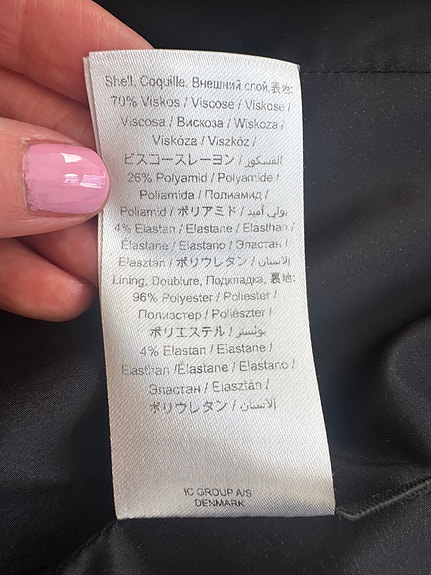 Shell, Coquille, Внешний слой, 表地:
70% Viskos / Viscose / Viskose /
Viscosa / Вискоза / Wiskoza /
Viskóza / Viszkóz /
ビスコースレーヨン / الفسكوز
26% Polyamid / Polyamide /
Poliamida / Полиамид /
Poliamid / ポリアミド / بولي أميد
4% Elastan / Elastane / Elasthan /
Élastane / Elastano / Эластан /
Elasztán / ポリウレタン / الإنستان
Lining, Doublure, Подкладка, 裏地:
96% Polyester / Poliester /
Полиэстер / Poliészter /
ポリエステル / بوئستر
4% Elastan / Elastane /
Elasthan /Élastane / Elastano /
Эластан / Elasztán /
ポリウレタン / الإنستان
IC GROUP A/S
DENMARK